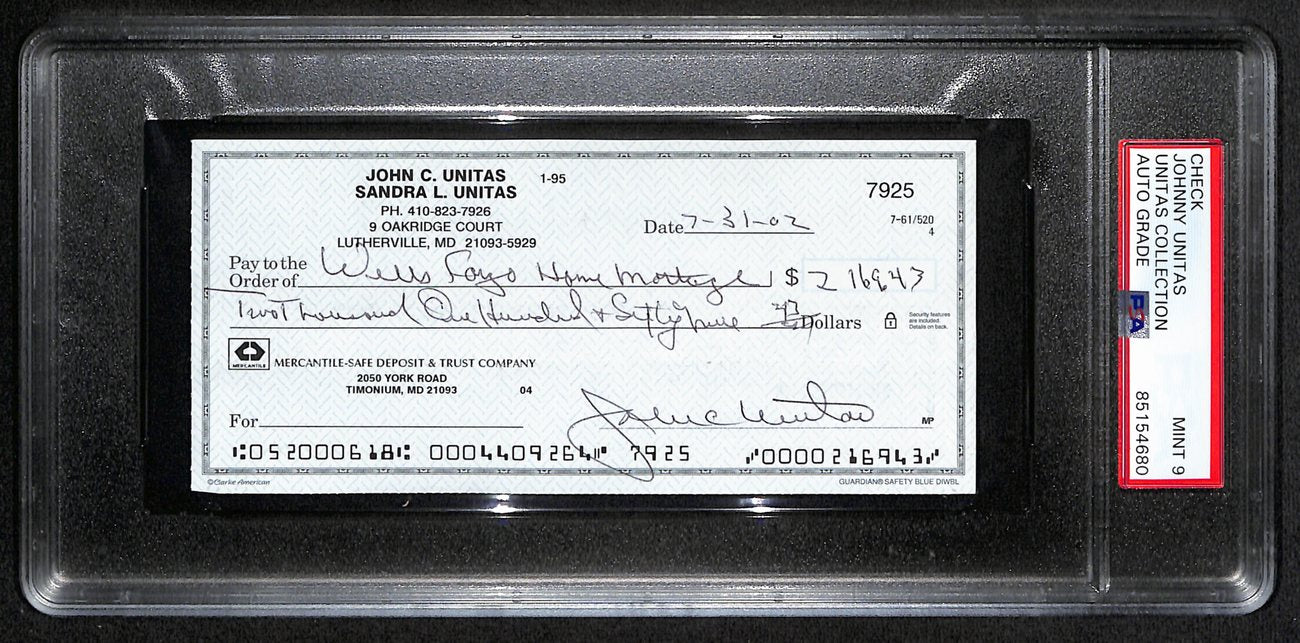 JOHN C. UNITAS 1-95
SANDRA L. UNITAS
7925
PH. 410-823-7926
9 OAKRIDGE COURT
LUTHERVILLE, MD 21093-5929
Date 7-31-02
7-61/520
4
Pay to the
Order of Wells Fargo Home Mortage $ 2 169.43
Two Thousand One Hundred & Sixty nine 43 Dollars
Security features
are included.
Details on back.
MERCANTILE
MERCANTILE-SAFE DEPOSIT & TRUST COMPANY
2050 YORK ROAD
TIMONIUM, MD 21093 04
For
John C Unitas
MP
⑆052000618⑆ 0004409264⑈ 7925 ⑈0000216943⑈
©Clarke American
GUARDIAN® SAFETY BLUE DIWBL
CHECK
JOHNNY UNITAS
UNITAS COLLECTION
AUTO GRADE
MINT 9
85154680
PSA